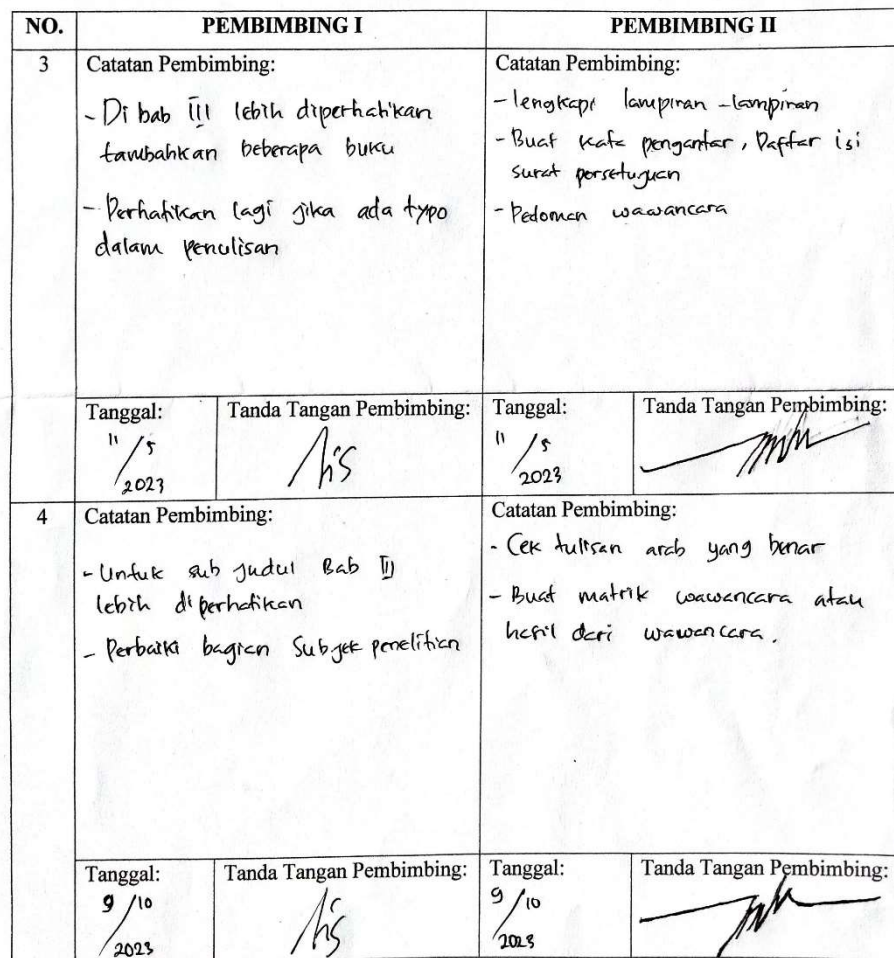 NO. PEMBIMBING I PEMBIMBING II
3 Catatan Pembimbing:
- Di bab III lebih diperhatikan
tambahkan beberapa buku
- Perhatikan lagi jika ada typo
dalam penulisan
Catatan Pembimbing:
- lengkapi lampiran-lampiran
- Buat kata pengantar, Daftar isi
surat persetujuan
- Pedoman wawancara
Tanggal:
11/5
2023
Tanda Tangan Pembimbing:
Tanggal:
11/5
2023
Tanda Tangan Pembimbing:
4 Catatan Pembimbing:
- Untuk sub judul Bab III
lebih diperhatikan
- Perbaiki bagian Subjek penelitian
Catatan Pembimbing:
- Cek tulisan arab yang benar
- Buat matrik wawancara atau
hasil dari wawancara.
Tanggal:
9/10
2023
Tanda Tangan Pembimbing:
Tanggal:
9/10
2023
Tanda Tangan Pembimbing: